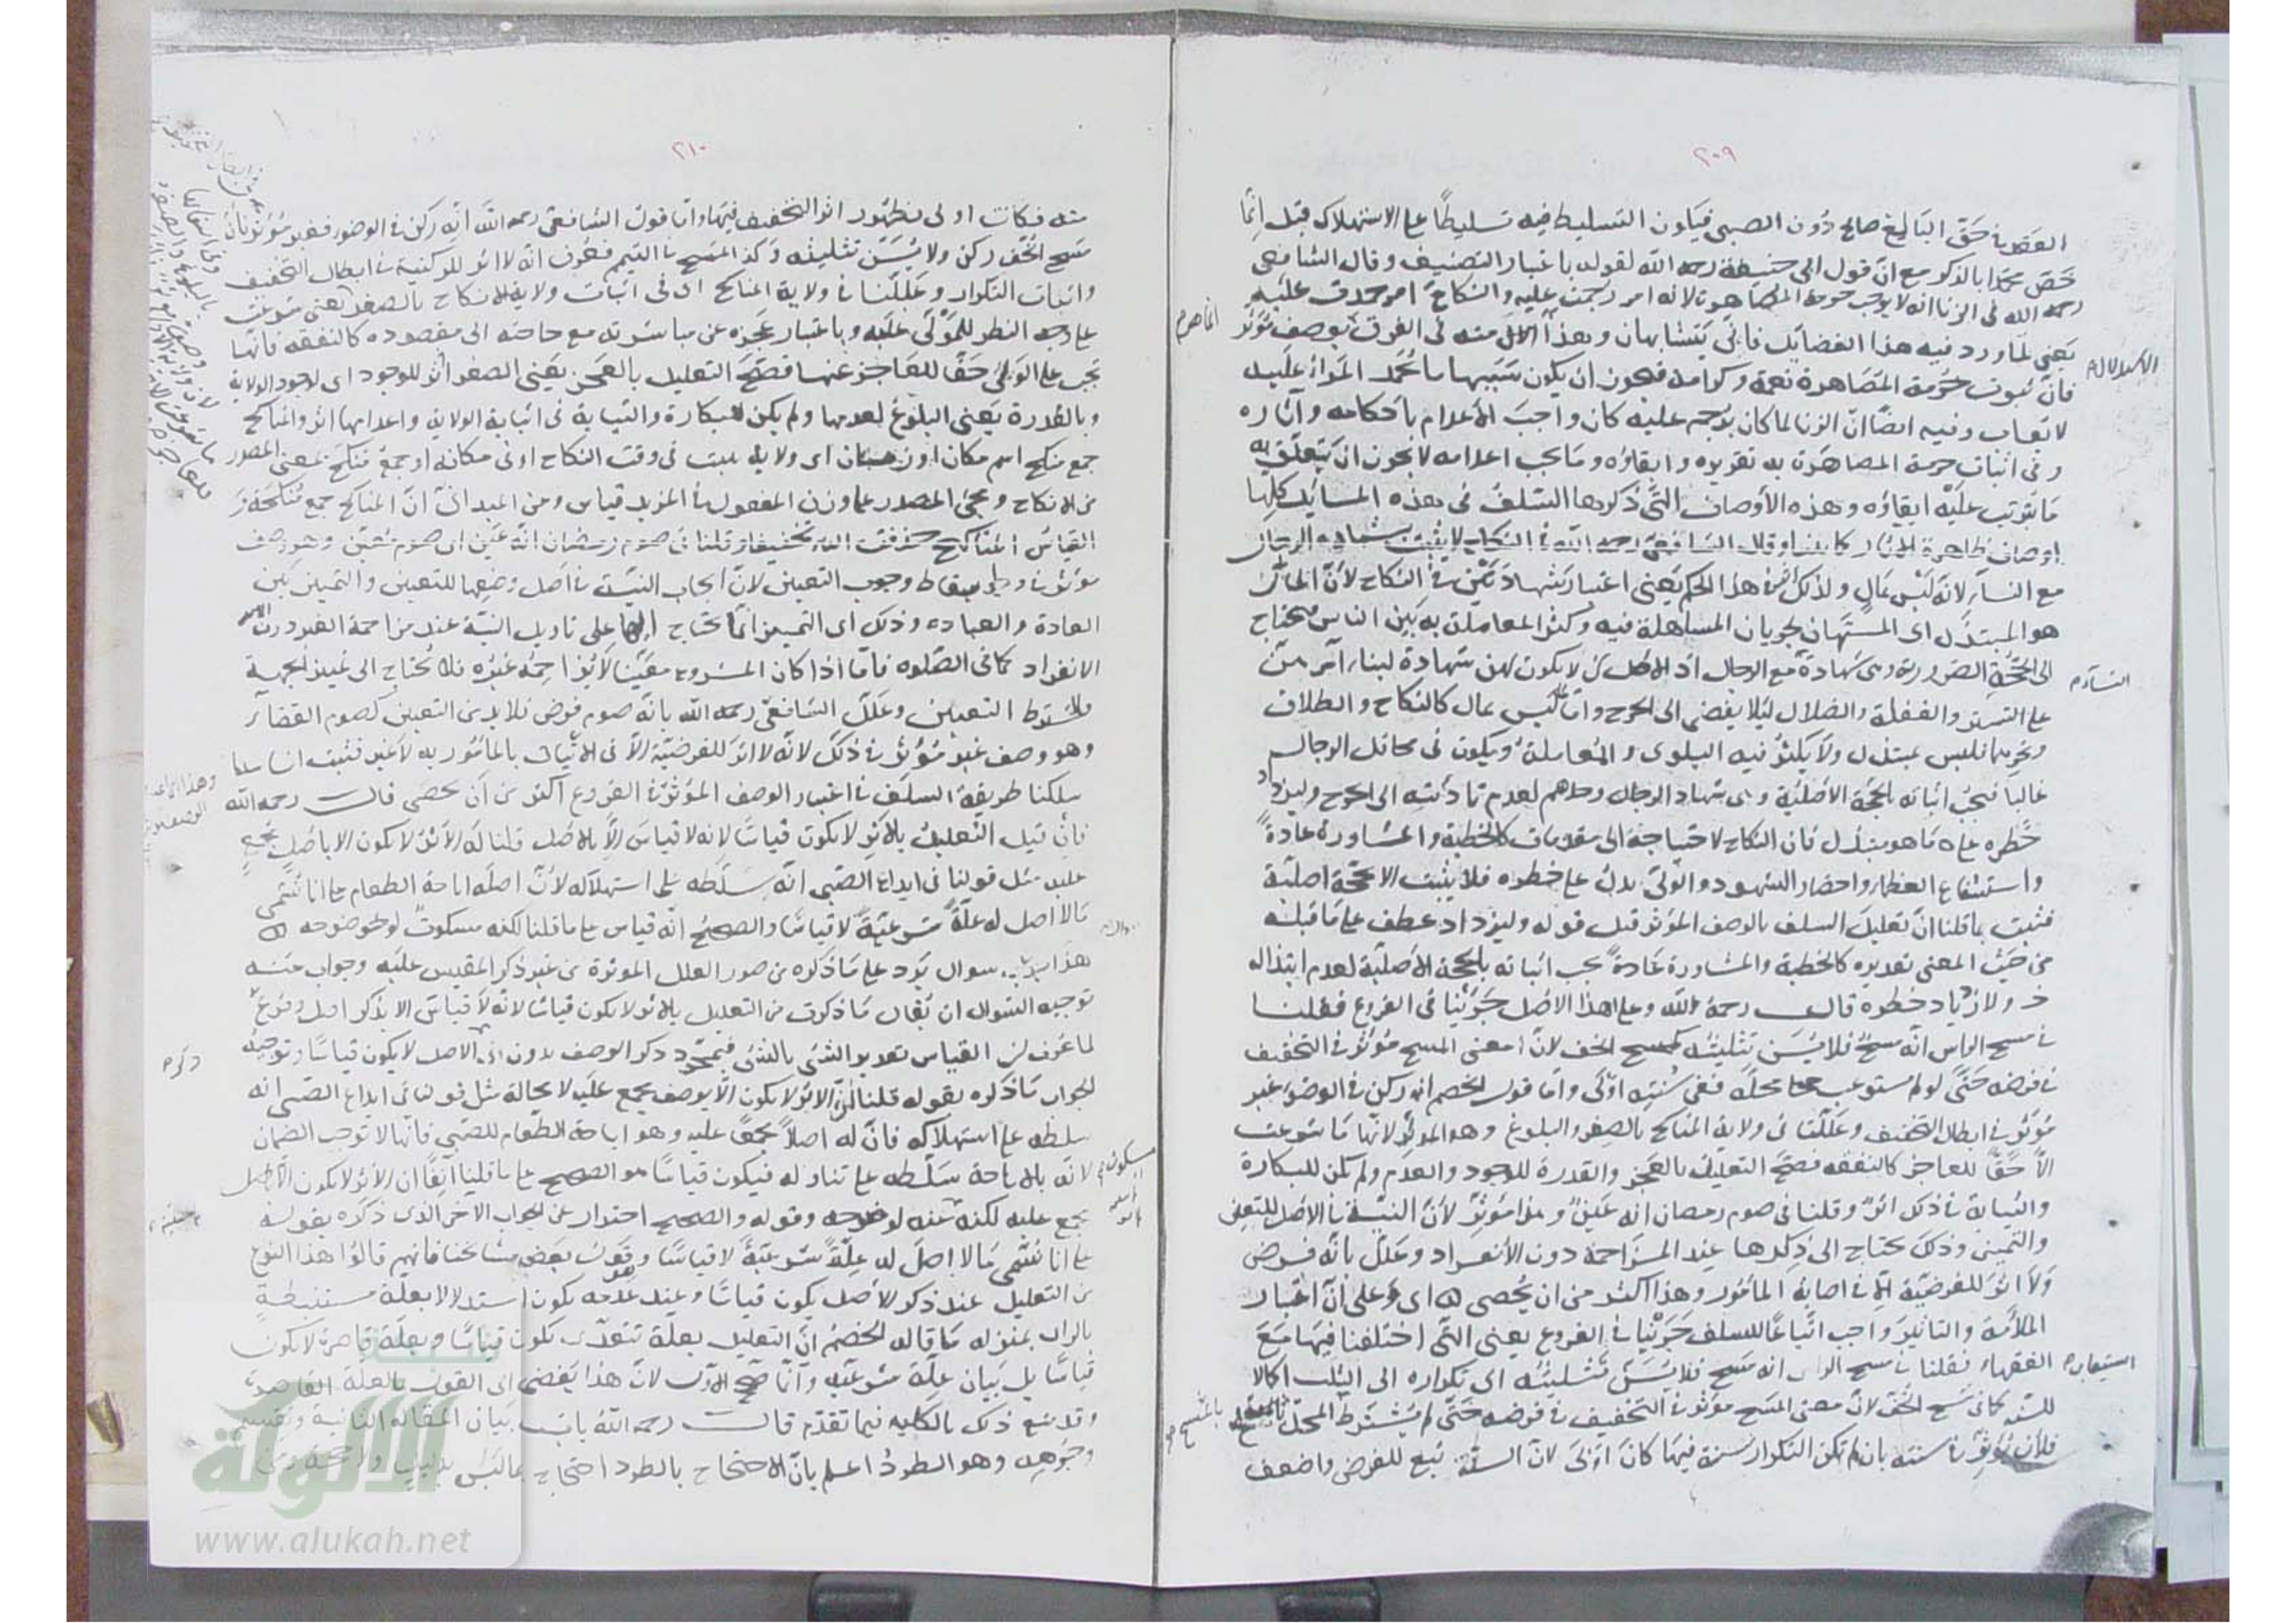 ٢٠٩
العقد في حق البالغ صالح دون الصبي فيكون التسليط فيه تسليطا على الاستهلاك قيل انما
خص محمدا بالذكر مع ان قول ابي حنيفة رحمه الله لقوله باعتبار التصنيف وقال الشافعي
رحمه الله في الزنا انه لا يوجب حرمة المصاهرة لانه امر رجمت عليه والنكاح امر حمدت عليه
يعني لما ورد فيه هذا الفضايل فاني يتشابهان وهذا منه في الفرق بوصف مؤثر
فان ثبوت حرمة المصاهرة نعمة وكرامة فيجوز ان يكون سببها ما يحمد المرء عليه
لا يعاب وفيه ايضا ان الزنا لما كان يرجم عليه كان واجب الاعدام باحكامه وآثاره
وفي اثبات حرمة المصاهرة به تقريره وابقاؤه وما يجب اعدامه لا يجوز ان يتعلق به
ما يترتب عليه ابقاؤه وهذه الأوصاف التي ذكرها السلف في هذه المسائل كلها
اوصاف ظاهرة الآثار كما بينا وقال الشافعي رحمه الله في النكاح لا يثبت بشهادة الرجال
مع النساء لانه ليس بمال ولذلك اثر في هذا الحكم يعني اعتبار شهادتهن في النكاح لأن المال
هو المبتذل اي المستهان لجريان المساهلة فيه وكثر المعاملة به بين الناس فيحتاج
الى الحجة الضرورية وهي شهادة مع الرجال اذ الاصل ان لا يكون لهن شهادة لبناء امرهن
على التستر والغفلة والضلال ليلا يفضي الى الحرج واما ليس بمال كالنكاح والطلاق
ونحوهما فليس بمبتذل ولا يكثر فيه البلوى والمعاملة ويكون في محافل الرجال
غالبا فيجب اثباته بالحجة الأصلية وهي شهادة الرجال وحدهم لعدم تأديته الى الحرج وليزداد
خطره على ما هو مبتذل فان النكاح لاحتياجه الى مقدمات كالخطبة والمشاورة عادة
واستشفاع العظماء واحضار الشهود والولي يدل على خطره فلا يثبت الا بحجة اصلية
فثبت بما قلنا ان تعليل السلف بالوصف المؤثر قيل قوله وليزداد عطف على ما قبله
من حيث المعنى تقديره كالخطبة والمشاورة عادة يجب اثباته بالحجة الأصلية لعدم ابتذاله
ولازدياد خطره قال رحمه الله وعلى هذا الاصل جرينا في الفروع فقلنا
في مسح الراس انه مسح فلا يسن تثليثه كمسح الخف لان معنى المسح مؤثر في التخفيف
في فرضه حتى لم يستوعب محله ففي سنته اولى واما قول الخصم انه ركن في الوضوء غير
مؤثر في ابطال التخفيف وعللنا في ولاية المناكح بالصغر والبلوغ وهو المؤثر لانها ما شرعت
الا حقا للعاجز كالنفقة فصح التعليل بالعجز والقدرة للوجود والعدم ولم يكن للبكارة
والثيابة في ذلك اثر وقلنا في صوم رمضان انه عين وهذا مؤثر لأن النية في الأصل للتعيين
والتمييز وذلك يحتاج الى ذكرها عند المزاحمة دون الانفراد وعلل بانه فرض
ولا اثر للفرضية الا في اصابة المأمور وهذا اكثر من ان يحصى اي وعلى ان اعتبار
الملائمة والتاثير واجب اتباعا للسلف جرينا في الفروع يعني التي اختلفنا فيها مع
الفقهاء فقلنا في مسح الراس انه مسح فلا يسن تثليثه اي تكراره الى الثلث اكمالا
للسنة كما في مسح الخف لان معنى المسح مؤثر في التخفيف في فرضه حتى لم يشترط المحل
فلأن يؤثر في سنته بان لم يكن التكرار سنة فيها كان اولى لان السنة تبع للفرض واضعف
٢١٠
منه فكانت اولى بظهور اثر التخفيف فيها واما قول الشافعي رحمه الله انه ركن في الوضوء فغير مؤثر فان
مسح الخف ركن ولا يسن تثليثه وكذا المسح في التيمم فعرف انه لا اثر للركنية في ابطال التخفيف
واثبات التكرار وعللنا في ولاية المناكح اي في اثبات ولاية الانكاح بالصغر يعني شرعت
على وجه النظر للمولى عليه وباعتبار عجزه عن مباشرته مع حاجته الى مقصوده كالنفقة فانها
تجب على الولي حقا للعاجز عنها فصح التعليل بالعجز يعني الصغر اثر للوجود اي لوجود الولاية
وبالقدرة يعني البلوغ لعدمها ولم يكن للبكارة والثيابة في اثبات الولاية واعدامها اثر والمناكح
جمع منكح اسم مكان او زمان اي ولاية ثبت في وقت النكاح او في مكانه او جمع منكح بمعنى المصدر
من الانكاح ومجيء المصدر على وزن المفعول في المزيد قياس ومن الميداني ان المناكح جمع منكحة
القياس المناكيح حذفت الياء تخفيفا وقلنا في صوم رمضان انه عين اي صوم متعين وهو وصف
مؤثر في اسقاط وجوب التعيين لان ايجاب النية في اصل وضعها للتعيين والتمييز بين
العادة والعبادة وذلك اي التمييز انما يحتاج اليها على تاويل النية عند مزاحمة الغير دون
الانفراد كما في الصلوة فاما اذا كان المشروع معينا لا يزاحمه غيره فلا يحتاج الى تمييز الجهة
التعيين وعلل الشافعي رحمه الله بانه صوم فرض فلا بد من التعيين كصوم القضاء
وهو وصف غير مؤثر في ذلك لانه لا اثر للفرضية الا في الاتيان بالمأمور به لا غير فثبت انا
سلكنا طريقة السلف في اعتبار الوصف المؤثر في الفروع اكثر من ان يحصى قال رحمه الله
فان قيل التعليل بالاثر لا يكون قياسا لانه لا قياس الا بالاصل قلنا له الأثر لا يكون الا باصل يجمع
عليه مثل قولنا في ايداع الصبي انه سلطه على استهلاكه لأن اصله اباحة الطعام على انا نسمي
ما لا اصل له علة شرعية لا قياسا والصحيح انه قياس على ما قلنا لكنه مسكوت لوضوحه
هذا سوال يرد على ما ذكره من صور العلل الموثرة من غير ذكر المقيس عليه وجواب عنه
توجيه السوال ان يقال ما ذكرت من التعليل بالاثر لا يكون قياسا لانه لا قياس الا بذكر اصل وفرع
لما عرف ان القياس تقدير الشئ بالشئ فبمجرد ذكر الوصف بدون الاصل لا يكون قياسا وتوجيه
الجواب ما ذكره بقوله قلنا الاثر لا يكون الا بوصف يجمع عليه لا محالة مثل قولنا في ايداع الصبي انه
سلطه على استهلاكه فان له اصلا مجمعا عليه وهو اباحة الطعام للصبي فانها لا توجب الضمان
لانه بالاباحة سلطه على تناوله فيكون قياسا هو الصحيح على ما قلنا آنفا ان الأثر لا يكون الا باصل
يجمع عليه لكنه عنه لوضوحه وقوله والصحيح احتراز عن الجواب الآخر الذي ذكره بقوله
على انا نسمي ما لا اصل له علة شرعية لا قياسا وقول بعض مشائخنا فانهم قالوا هذا النوع
من التعليل عند ذكر الأصل يكون قياسا وعند عدمه يكون استدلالا بعلة مستنبطة
بالراى بمنزلة ما قاله الخصم ان التعليل بعلة تتعدى يكون قياسا وبعلة قاصرة لا يكون
قياسا بل بيان علة شرعية وانا صحح الأول لان هذا يفضي الى القول بالعلة القاصرة
وقد منع ذلك بالكلية فيما تقدم قال رحمه الله باب بيان المقالة الثانية وتقسيم
وجوهه وهو الطرد اعلم بان الاحتجاج بالطرد احتجاج بما ليس بدليل
الألوكة
www.alukah.net